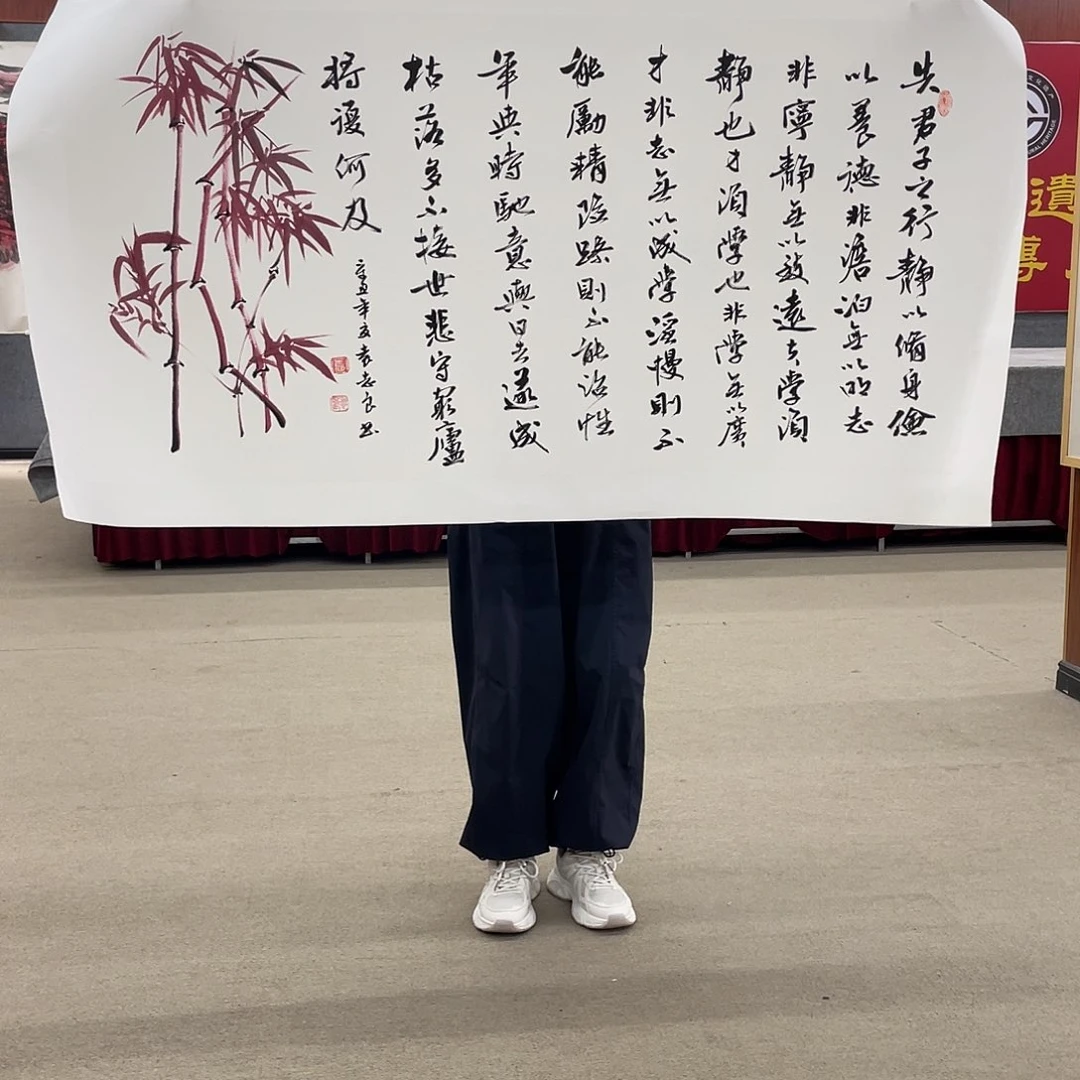 夫君子之行靜以脩身儉
以養德非澹泊無以明志
非寧靜無以致遠夫學須
靜也才須學也非學無以廣
才非志無以成學淫慢則不
能勵精險躁則不能治性
年與時馳意與日去遂成
枯落多不接世悲守窮廬
將復何及
辛丑年夏袁志良书
遺
HERITAGE